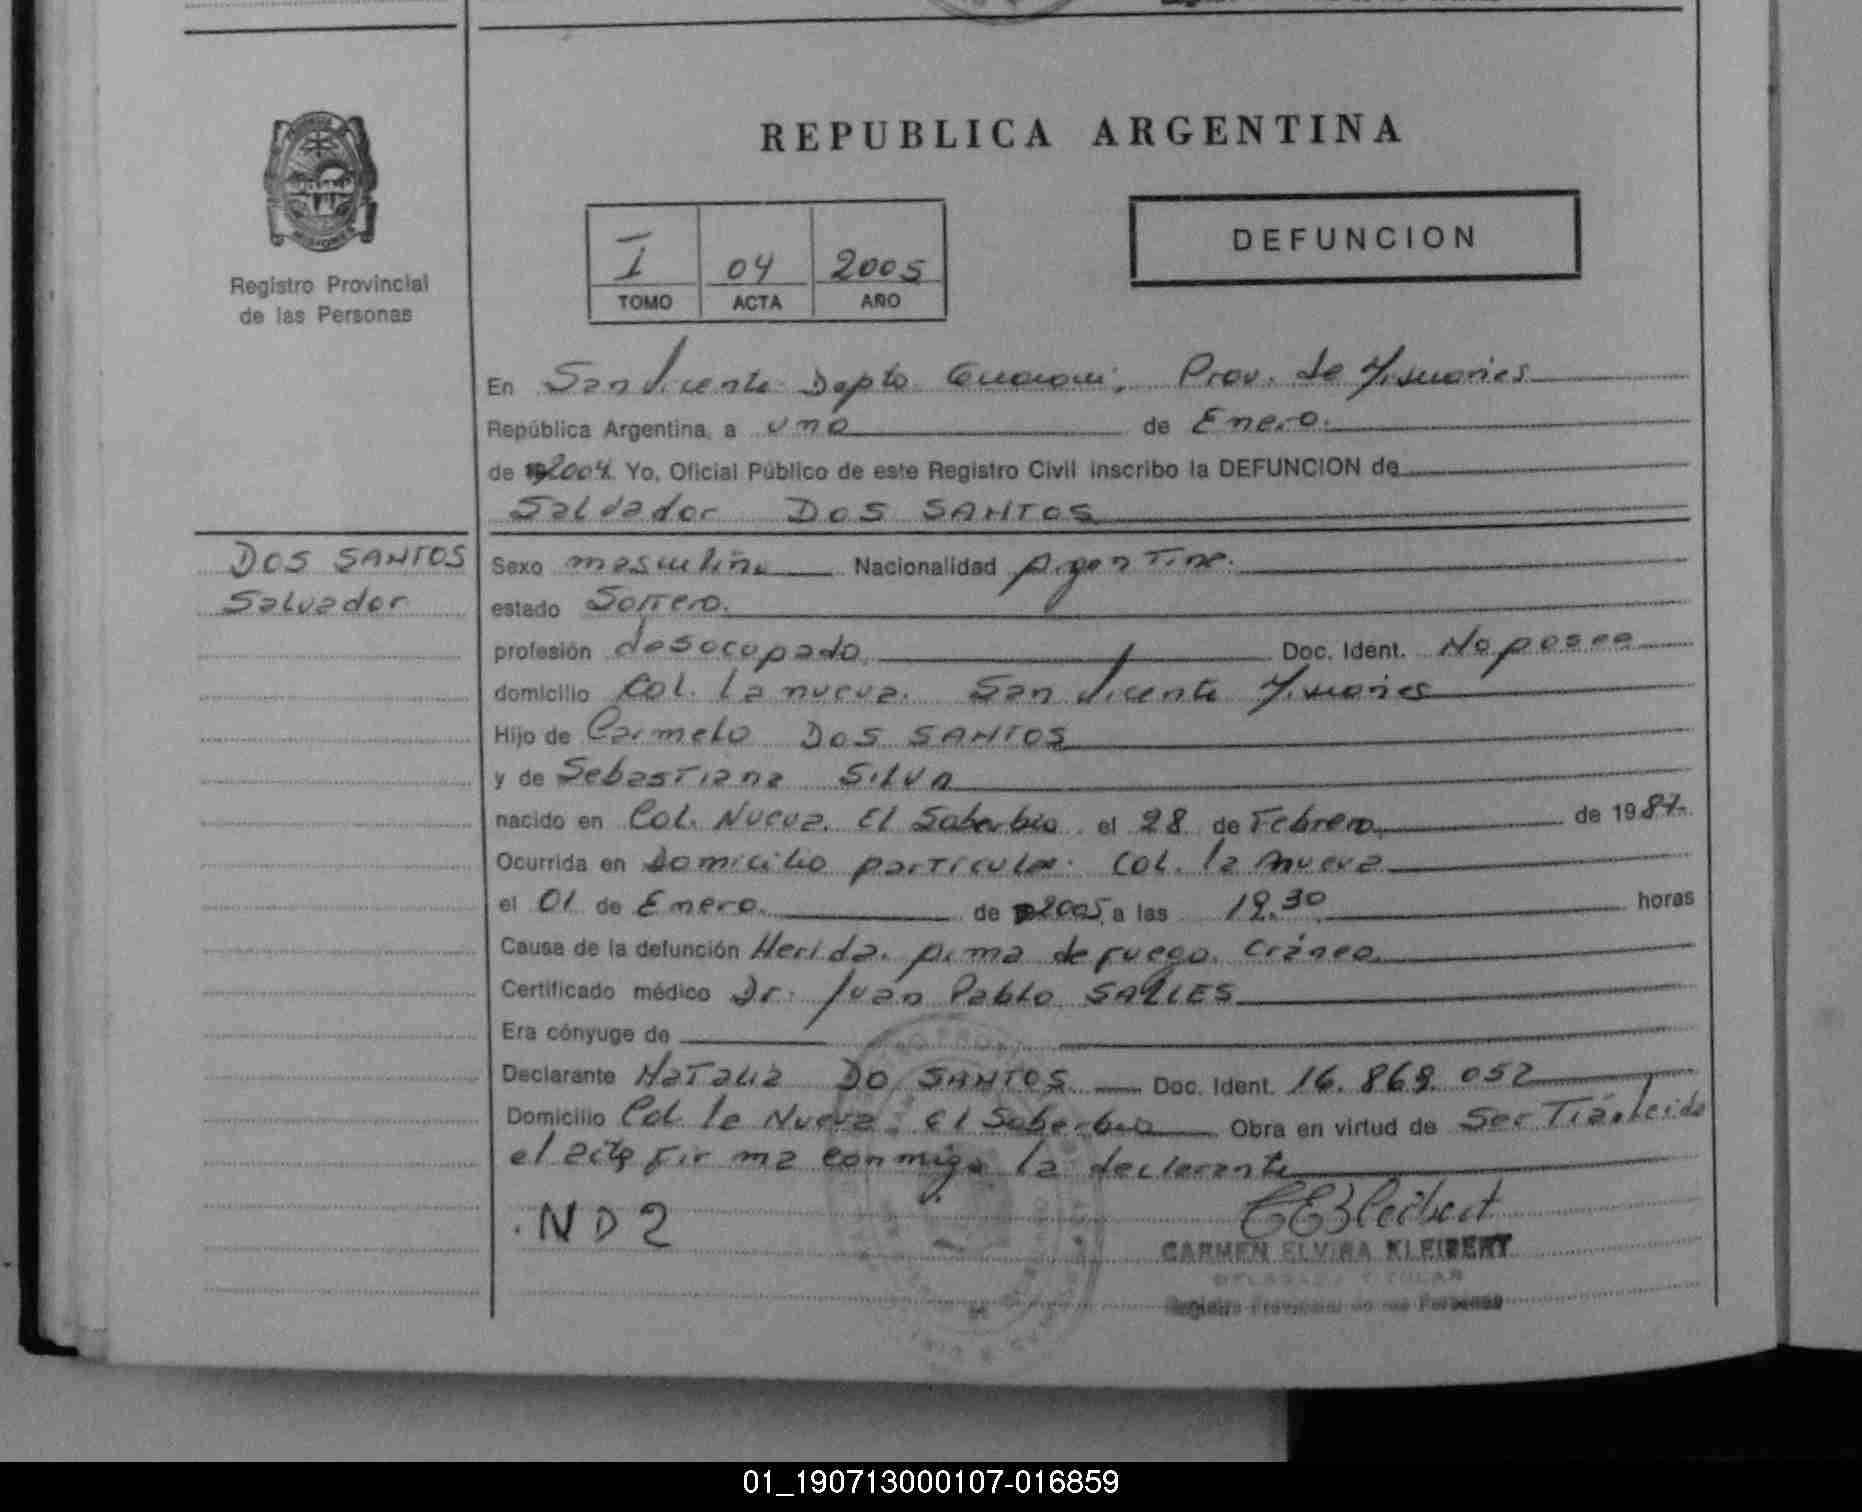 REPUBLICA ARGENTINA
Registro Provincial
de las Personas
I 04 2005
TOMO ACTA AÑO
DEFUNCION
En San Vicente Depto Guarani, Prov. de Misiones
República Argentina, a uno de Enero.
de 2004. Yo, Oficial Público de este Registro Civil inscribo la DEFUNCION de
Salvador DOS SANTOS
DOS SANTOS
Salvador
Sexo masculino Nacionalidad Argentina.
estado Soltero.
profesión desocupado Doc. Ident. No posee
domicilio Col. La nueva. San Vicente Misiones
Hijo de Carmelo DOS SANTOS
y de Sebastiana SILVA
nacido en Col. Nueva. El Soberbio el 28 de Febrero de 1987.
Ocurrida en Domicilio particular. Col. la Nueva
el 01 de Enero. de 2005 a las 19.30 horas
Causa de la defunción Herida. arma de fuego. Cráneo
Certificado médico Dr. Juan Pablo SALLES
Era cónyuge de
Declarante Natalia DO SANTOS Doc. Ident. 16.869.052
Domicilio Col. la Nueva. El Soberbio Obra en virtud de Ser
el acta firma conmigo la declarante
.ND2
CARMEN ELVIRA KLEIBERT
DELEGADA TITULAR
Registro Provincial de las Personas
01_190713000107-016859